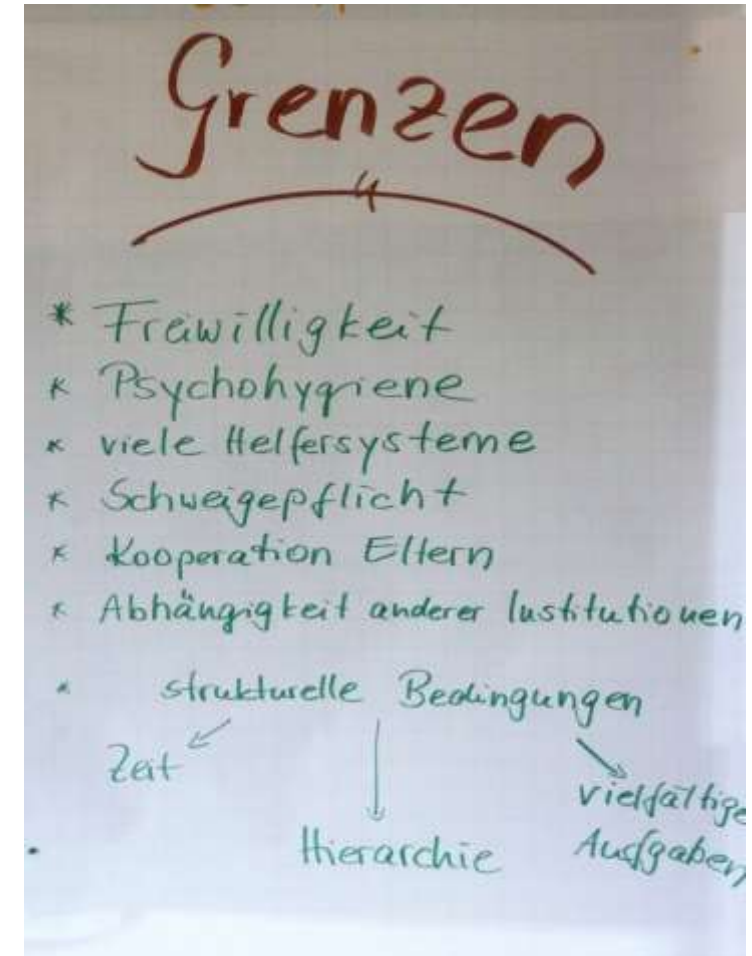 Grenzen
* Freiwilligkeit
* Psychohygiene
* viele Helfersysteme
* Schweigepflicht
* Kooperation Eltern
* Abhängigkeit anderer Institutionen
* strukturelle Bedingungen
Zeit
Hierarchie
vielfältige
Aufgaben